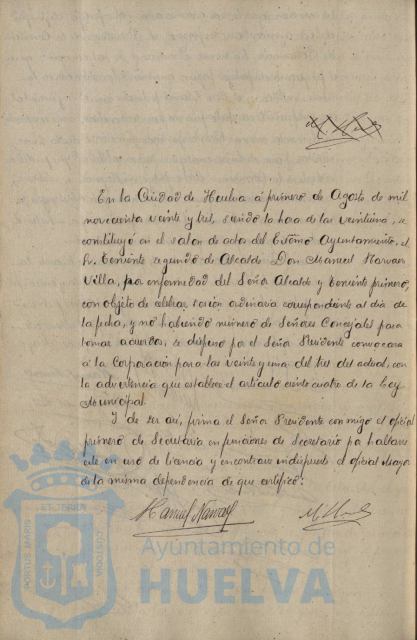 En la Ciudad de Huelva á primero de Agosto de mil
novecientos veinte y tres, siendo la hora de las veintiuna, se
constituyó en el salon de actos del Excmo Ayuntamiento, el
Sr. Teniente segundo de Alcalde Don Manuel Narvaez
Villa, por enfermedad del Señor Alcalde y Teniente primero,
con objeto de celebrar sesión ordinaria correspondiente al dia de
la fecha, y no habiendo número de Señores Concejales para
tomar acuerdos, se dispuso por el Señor Presidente convocar
á la Corporación para las veinte y una del tres del actual, con
la advertencia que establece el artículo ciento cuatro de la Ley
Municipal.
Y de ser asi, firma el Señor Presidente conmigo el oficial
primero de Secretaria en funciones de Secretario por hallarse
este en uso de licencia y encontrarse indispuesto el oficial Mayor
de la misma dependencia de que certifico:
Manuel Narvaez
PORTUS MARIS
ET TERRÆ
CUSTODIA
Ayuntamiento de
HUELVA